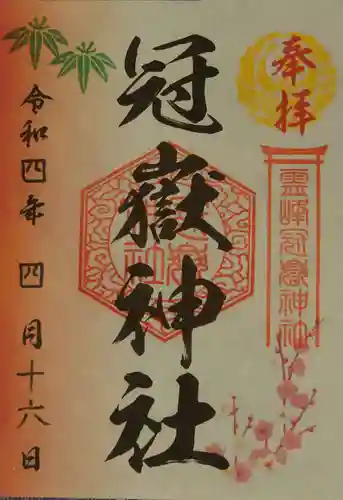 奉拝
霊峰冠嶽神社
冠嶽神社
令和四年 四月十六日